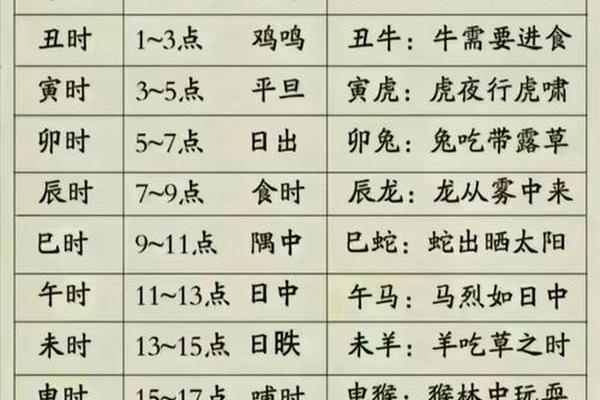 丑时 1~3点 鸡鸣 丑牛：牛需要进食
寅时 3~5点 平旦 寅虎：虎夜行虎啸
卯时 5~7点 日出 卯兔：兔吃带露草
辰时 7~9点 食时 辰龙：龙从雾中来
巳时 9~11点 隅中 巳蛇：蛇出晒太阳
午时 11~13点 日中 午马：马烈如日中
未时 13~15点 日昳 未羊：羊吃草之时
申时 15~17点 哺时 申猴：猴林中玩耍